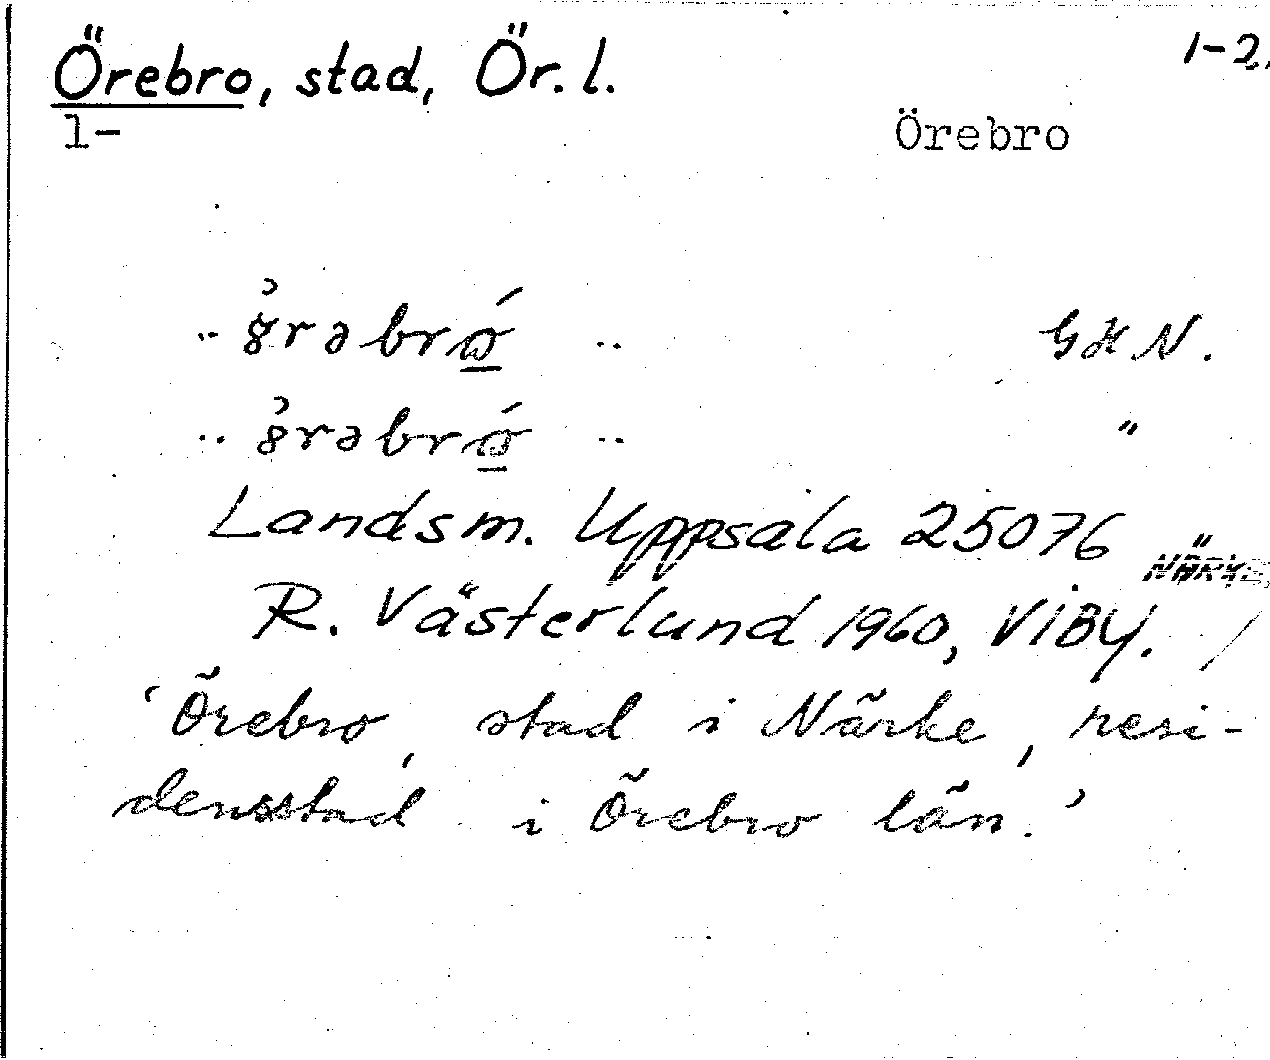 Örebro, stad, Ör. l. 1-2.
1- Örebro
GHN.
"
Landsm. Uppsala 25076 NÄRKE,
R. Västerlund 1960, VIBY.
'Örebro, stad i Närke, resi-
densstad i Örebro län.'